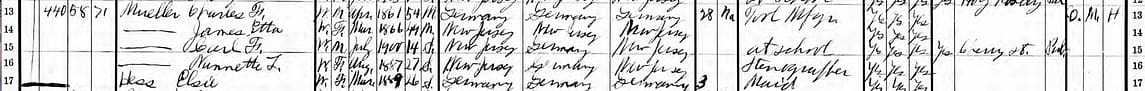 13 440 58 71 Mueller Charles Fr. W M Apr. 1861 54 M Germany Germany Germany 28 Na Tool Mfgr yes yes yes O. M. H 13
14 —— James Etta W F Mar. 1866 49 M New Jersey New Jersey New Jersey yes yes yes 14
15 —— Carl Fr. W M July 1900 14 S New Jersey Germany New Jersey at school yes yes yes yes Cherry St. 15
16 —— Nannette L. W F Aug. 1887 27 S New Jersey Germany New Jersey Stenographer yes yes yes 16
17 Hess Elsie W F Mar. 26 S Germany Germany Germany 3 Maid yes yes yes 17